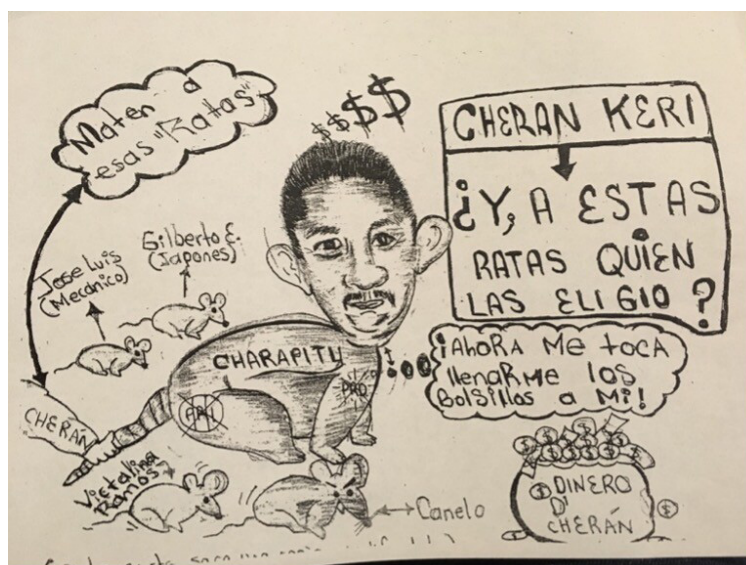 Maten a
esas "Ratas"
$$$$
CHERAN KERI
¿Y, A ESTAS
RATAS QUIEN
LAS ELIGIO?
Gilberto E.
(Japones)
Jose Luis
(Mecánico)
CHARAPITU
PRD
PRI
CHERÁN
¡AhORA ME tOCA
llENARME los
BOlSillOS A Mí!
Victalina
Ramos
Canelo
DINERO
D'
CHERÁN